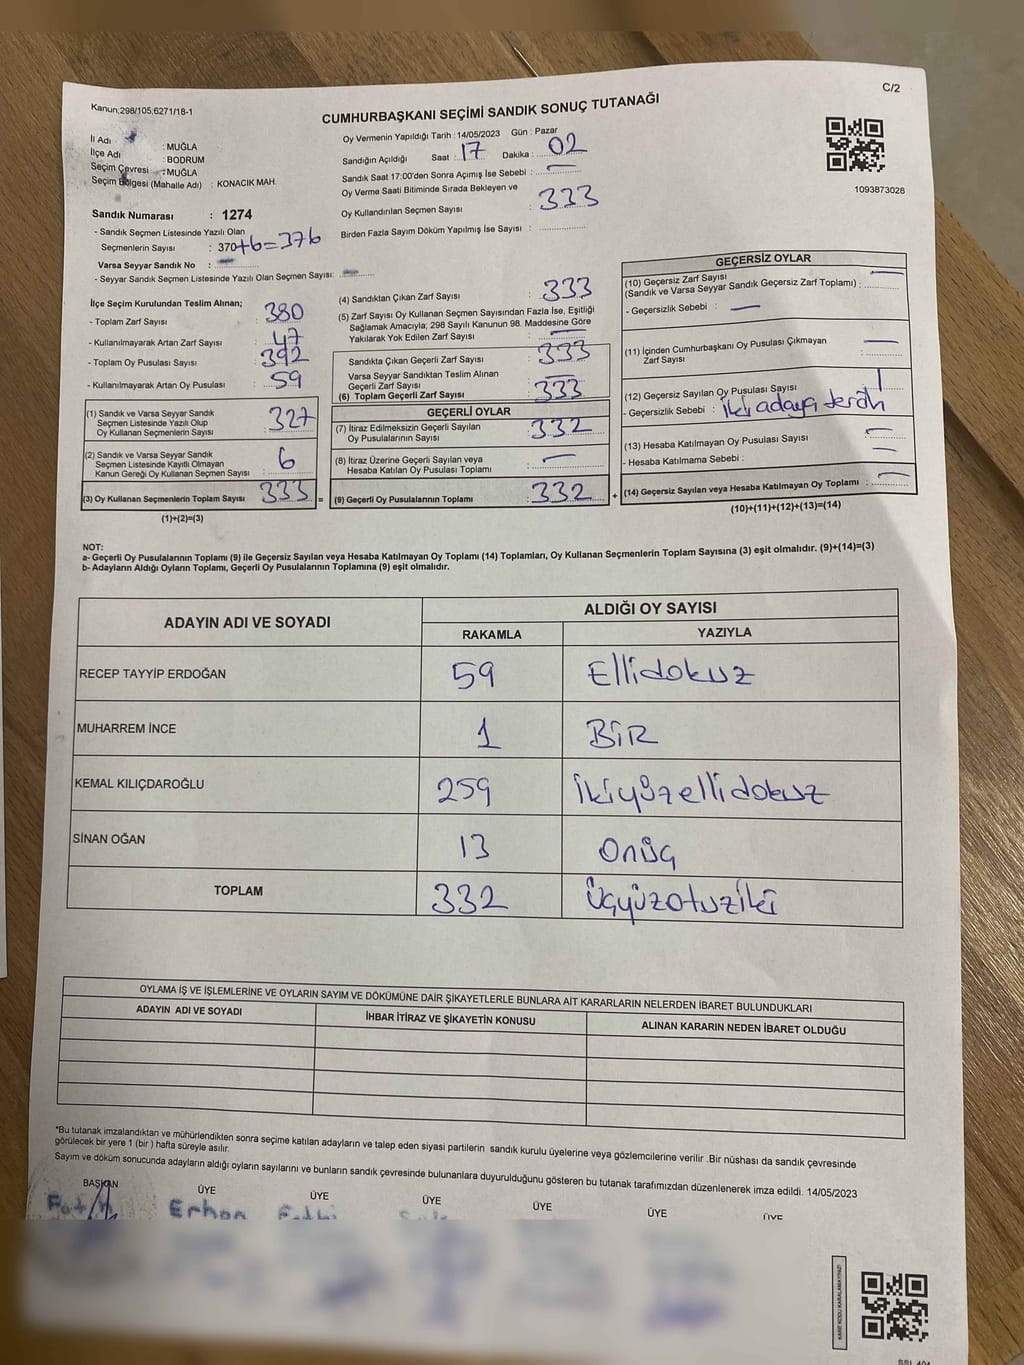 C/2
Kanun;298/105;6271/18-1
CUMHURBAŞKANI SEÇİMİ SANDIK SONUÇ TUTANAĞI
İl Adı : MUĞLA
İlçe Adı : BODRUM
Seçim Çevresi : MUĞLA
Seçim Bölgesi (Mahalle Adı) : KONACIK MAH.
Oy Vermenin Yapıldığı Tarih : 14/05/2023 Gün : Pazar
Sandığın Açıldığı Saat : 17 Dakika : 02
Sandık Saat 17:00'den Sonra Açımış İse Sebebi :
Oy Verme Saati Bitiminde Sırada Bekleyen ve
Oy Kullandırılan Seçmen Sayısı : 333
Birden Fazla Sayım Döküm Yapılmış İse Sayısı :
1093873028
Sandık Numarası : 1274
- Sandık Seçmen Listesinde Yazılı Olan
Seçmenlerin Sayısı : 370+6=376
Varsa Seyyar Sandık No :
- Seyyar Sandık Seçmen Listesinde Yazılı Olan Seçmen Sayısı:
İlçe Seçim Kurulundan Teslim Alınan;
- Toplam Zarf Sayısı : 380
- Kullanılmayarak Artan Zarf Sayısı : 47
- Toplam Oy Pusulası Sayısı : 392
- Kullanılmayarak Artan Oy Pusulası : 59
(1) Sandık ve Varsa Seyyar Sandık
Seçmen Listesinde Yazılı Olup
Oy Kullanan Seçmenlerin Sayısı : 327
(2) Sandık ve Varsa Seyyar Sandık
Seçmen Listesinde Kayıtlı Olmayan
Kanun Gereği Oy Kullanan Seçmen Sayısı : 6
(3) Oy Kullanan Seçmenlerin Toplam Sayısı : 333 =
(1)+(2)=(3)
(4) Sandıktan Çıkan Zarf Sayısı : 333
(5) Zarf Sayısı Oy Kullanan Seçmen Sayısından Fazla İse, Eşitliği
Sağlamak Amacıyla; 298 Sayılı Kanunun 98. Maddesine Göre
Yakılarak Yok Edilen Zarf Sayısı :
Sandıkta Çıkan Geçerli Zarf Sayısı : 333
Varsa Seyyar Sandıktan Teslim Alınan
Geçerli Zarf Sayısı :
(6) Toplam Geçerli Zarf Sayısı : 333
GEÇERLİ OYLAR
(7) İtiraz Edilmeksizin Geçerli Sayılan
Oy Pusulalarının Sayısı : 332
(8) İtiraz Üzerine Geçerli Sayılan veya
Hesaba Katılan Oy Pusulası Toplamı :
(9) Geçerli Oy Pusulalarının Toplamı : 332 +
GEÇERSİZ OYLAR
(10) Geçersiz Zarf Sayısı
(Sandık ve Varsa Seyyar Sandık Geçersiz Zarf Toplamı) :
- Geçersizlik Sebebi :
(11) İçinden Cumhurbaşkanı Oy Pusulası Çıkmayan
Zarf Sayısı :
(12) Geçersiz Sayılan Oy Pusulası Sayısı : 1
- Geçersizlik Sebebi : iki adaya tercih
(13) Hesaba Katılmayan Oy Pusulası Sayısı :
- Hesaba Katılmama Sebebi :
(14) Geçersiz Sayılan veya Hesaba Katılmayan Oy Toplamı :
(10)+(11)+(12)+(13)=(14)
NOT:
a- Geçerli Oy Pusulalarının Toplamı (9) ile Geçersiz Sayılan veya Hesaba Katılmayan Oy Toplamı (14) Toplamları, Oy Kullanan Seçmenlerin Toplam Sayısına (3) eşit olmalıdır. (9)+(14)=(3)
b- Adayların Aldığı Oyların Toplamı, Geçerli Oy Pusulalarının Toplamına (9) eşit olmalıdır.
ADAYIN ADI VE SOYADI ALDIĞI OY SAYISI
RAKAMLA YAZIYLA
RECEP TAYYİP ERDOĞAN 59 Ellidokuz
MUHARREM İNCE 1 BİR
KEMAL KILIÇDAROĞLU 259 ikiyüzellidokuz
SİNAN OĞAN 13 onüç
TOPLAM 332 üçyüzotuziki
OYLAMA İŞ VE İŞLEMLERİNE VE OYLARIN SAYIM VE DÖKÜMÜNE DAİR ŞİKAYETLERLE BUNLARA AİT KARARLARIN NELERDEN İBARET BULUNDUKLARI
ADAYIN ADI VE SOYADI İHBAR İTİRAZ VE ŞİKAYETİN KONUSU ALINAN KARARIN NEDEN İBARET OLDUĞU
*Bu tutanak imzalandıktan ve mühürlendikten sonra seçime katılan adayların ve talep eden siyasi partilerin sandık kurulu üyelerine veya gözlemcilerine verilir .Bir nüshası da sandık çevresinde
görülecek bir yere 1 (bir ) hafta süreyle asılır.
Sayım ve döküm sonucunda adayların aldığı oyların sayılarını ve bunların sandık çevresinde bulunanlara duyurulduğunu gösteren bu tutanak tarafımızdan düzenlenerek imza edildi. 14/05/2023
BAŞKAN ÜYE ÜYE ÜYE ÜYE ÜYE ÜYE
Erhan